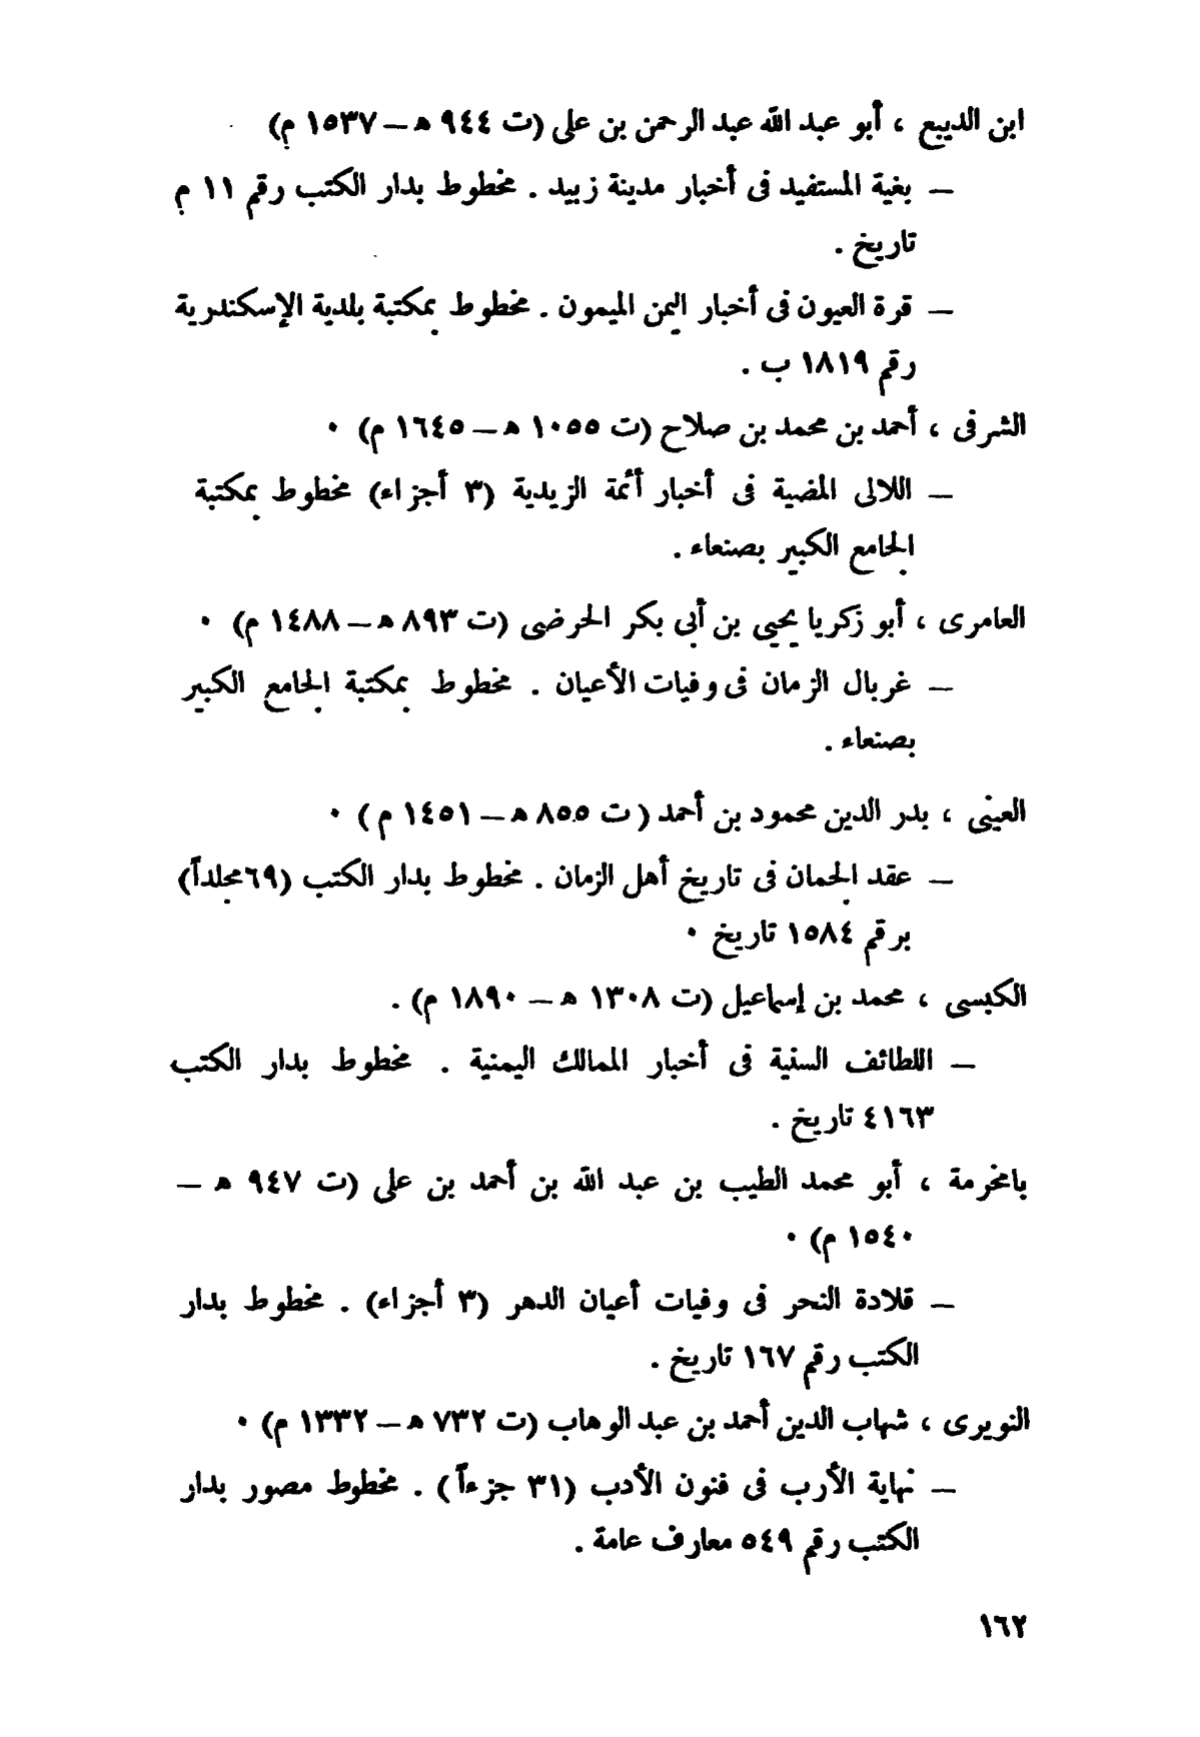 ابن الديبع ، أبو عبد الله عبد الرحمن بن على (ت ٩٤٤ ه – ١٥٣٧ م)
– بغية المستفيد فى أخبار مدينة زبيد . مخطوط بدار الكتب رقم ١١ م
تاريخ .
– قرة العيون فى أخبار اليمن الميمون . مخطوط بمكتبة بلدية الإسكندرية
رقم ١٨١٩ ب .
الشرفى ، أحمد بن محمد بن صلاح (ت ١٠٥٥ ه – ١٦٤٥ م) ٠
– اللالى المضية فى أخبار أئمة الزيدية (٣ أجزاء) مخطوط بمكتبة
الجامع الكبير بصنعاء .
العامرى ، أبو زكريا يحيى بن أبى بكر الحرضى (ت ٨٩٣ ه – ١٤٨٨ م) ٠
– غربال الزمان فى وفيات الأعيان . مخطوط بمكتبة الجامع الكبير
بصنعاء .
العينى ، بدر الدين محمود بن أحمد ( ت ٨٥٥ ه – ١٤٥١ م ) ٠
– عقد الجمان فى تاريخ أهل الزمان . مخطوط بدار الكتب (٦٩مجلداً)
برقم ١٥٨٤ تاريخ ٠
الكبسى ، محمد بن إسماعيل (ت ١٣٠٨ ه – ١٨٩٠ م) .
– اللطائف السنية فى أخبار الممالك اليمنية . مخطوط بدار الكتب
٤١٦٣ تاريخ .
بامخرمة ، أبو محمد الطيب بن عبد الله بن أحمد بن على (ت ٩٤٧ ه –
١٥٤٠ م) ٠
– قلادة النحر فى وفيات أعيان الدهر (٣ أجزاء) . مخطوط بدار
الكتب رقم ١٦٧ تاريخ .
النويرى ، شهاب الدين أحمد بن عبد الوهاب (ت ٧٣٢ ه – ١٣٣٢ م) ٠
– نهاية الأرب فى فنون الأدب (٣١ جزءاً ) . مخطوط مصور بدار
الكتب رقم ٥٤٩ معارف عامة .
١٦٢